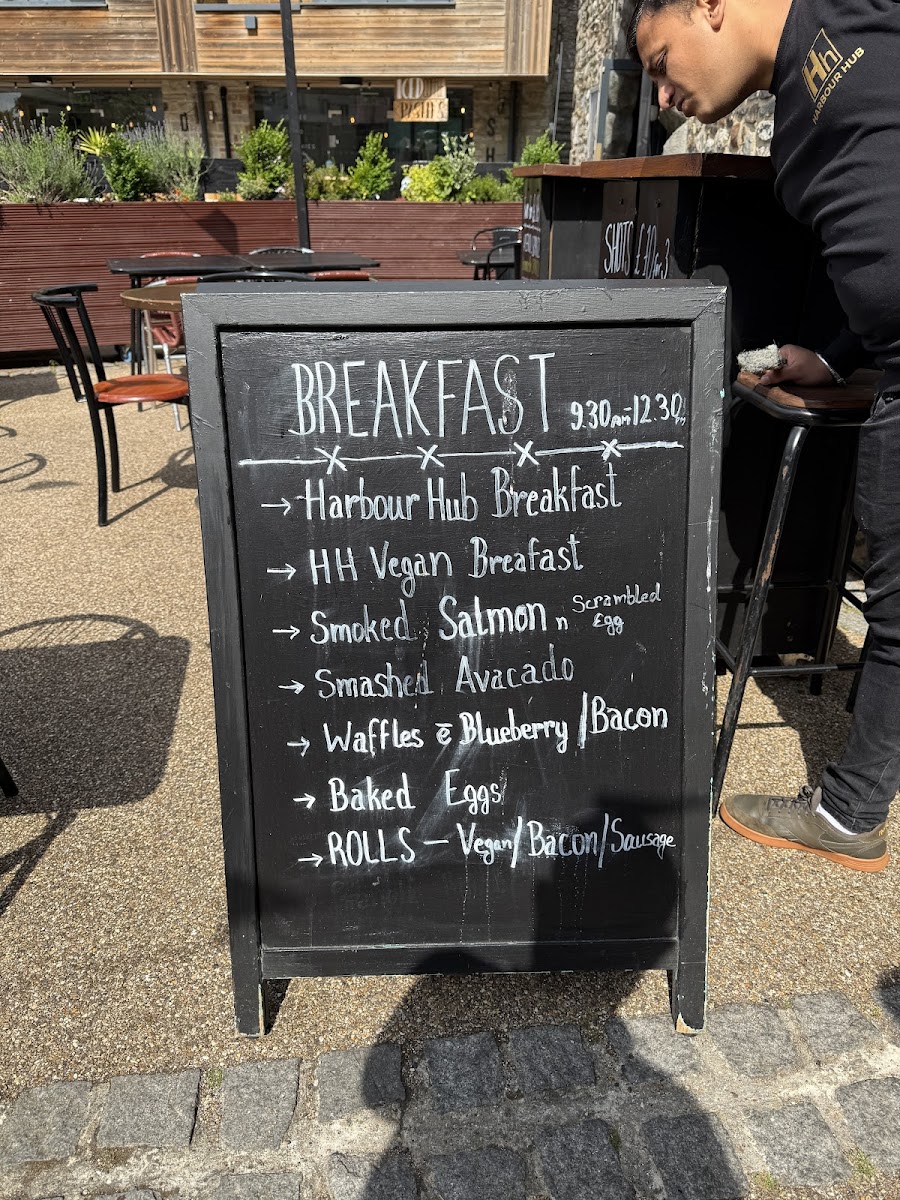 Hh
HARBOUR HUB
SHOTS £10 for 3
BREAKFAST 9.30AM-12.30PM
→ Harbour Hub Breakfast
→ HH Vegan Breafast
→ Smoked Salmon n Scrambled Egg
→ Smashed Avacado
→ Waffles c̄ Blueberry/Bacon
→ Baked Eggs
→ ROLLS – Vegan/Bacon/Sausage